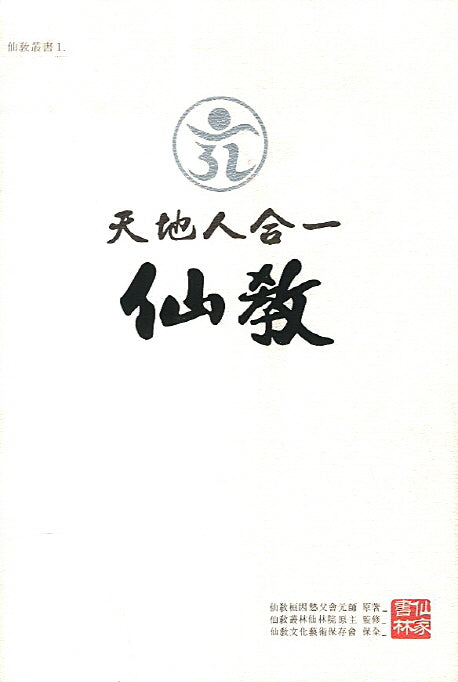 仙敎叢書 1.
天地人合一
仙敎
仙敎桓因慜父會元師 原著
仙敎叢林仙林院原主 監修
仙敎文化藝術保存會 保全
仙家書林